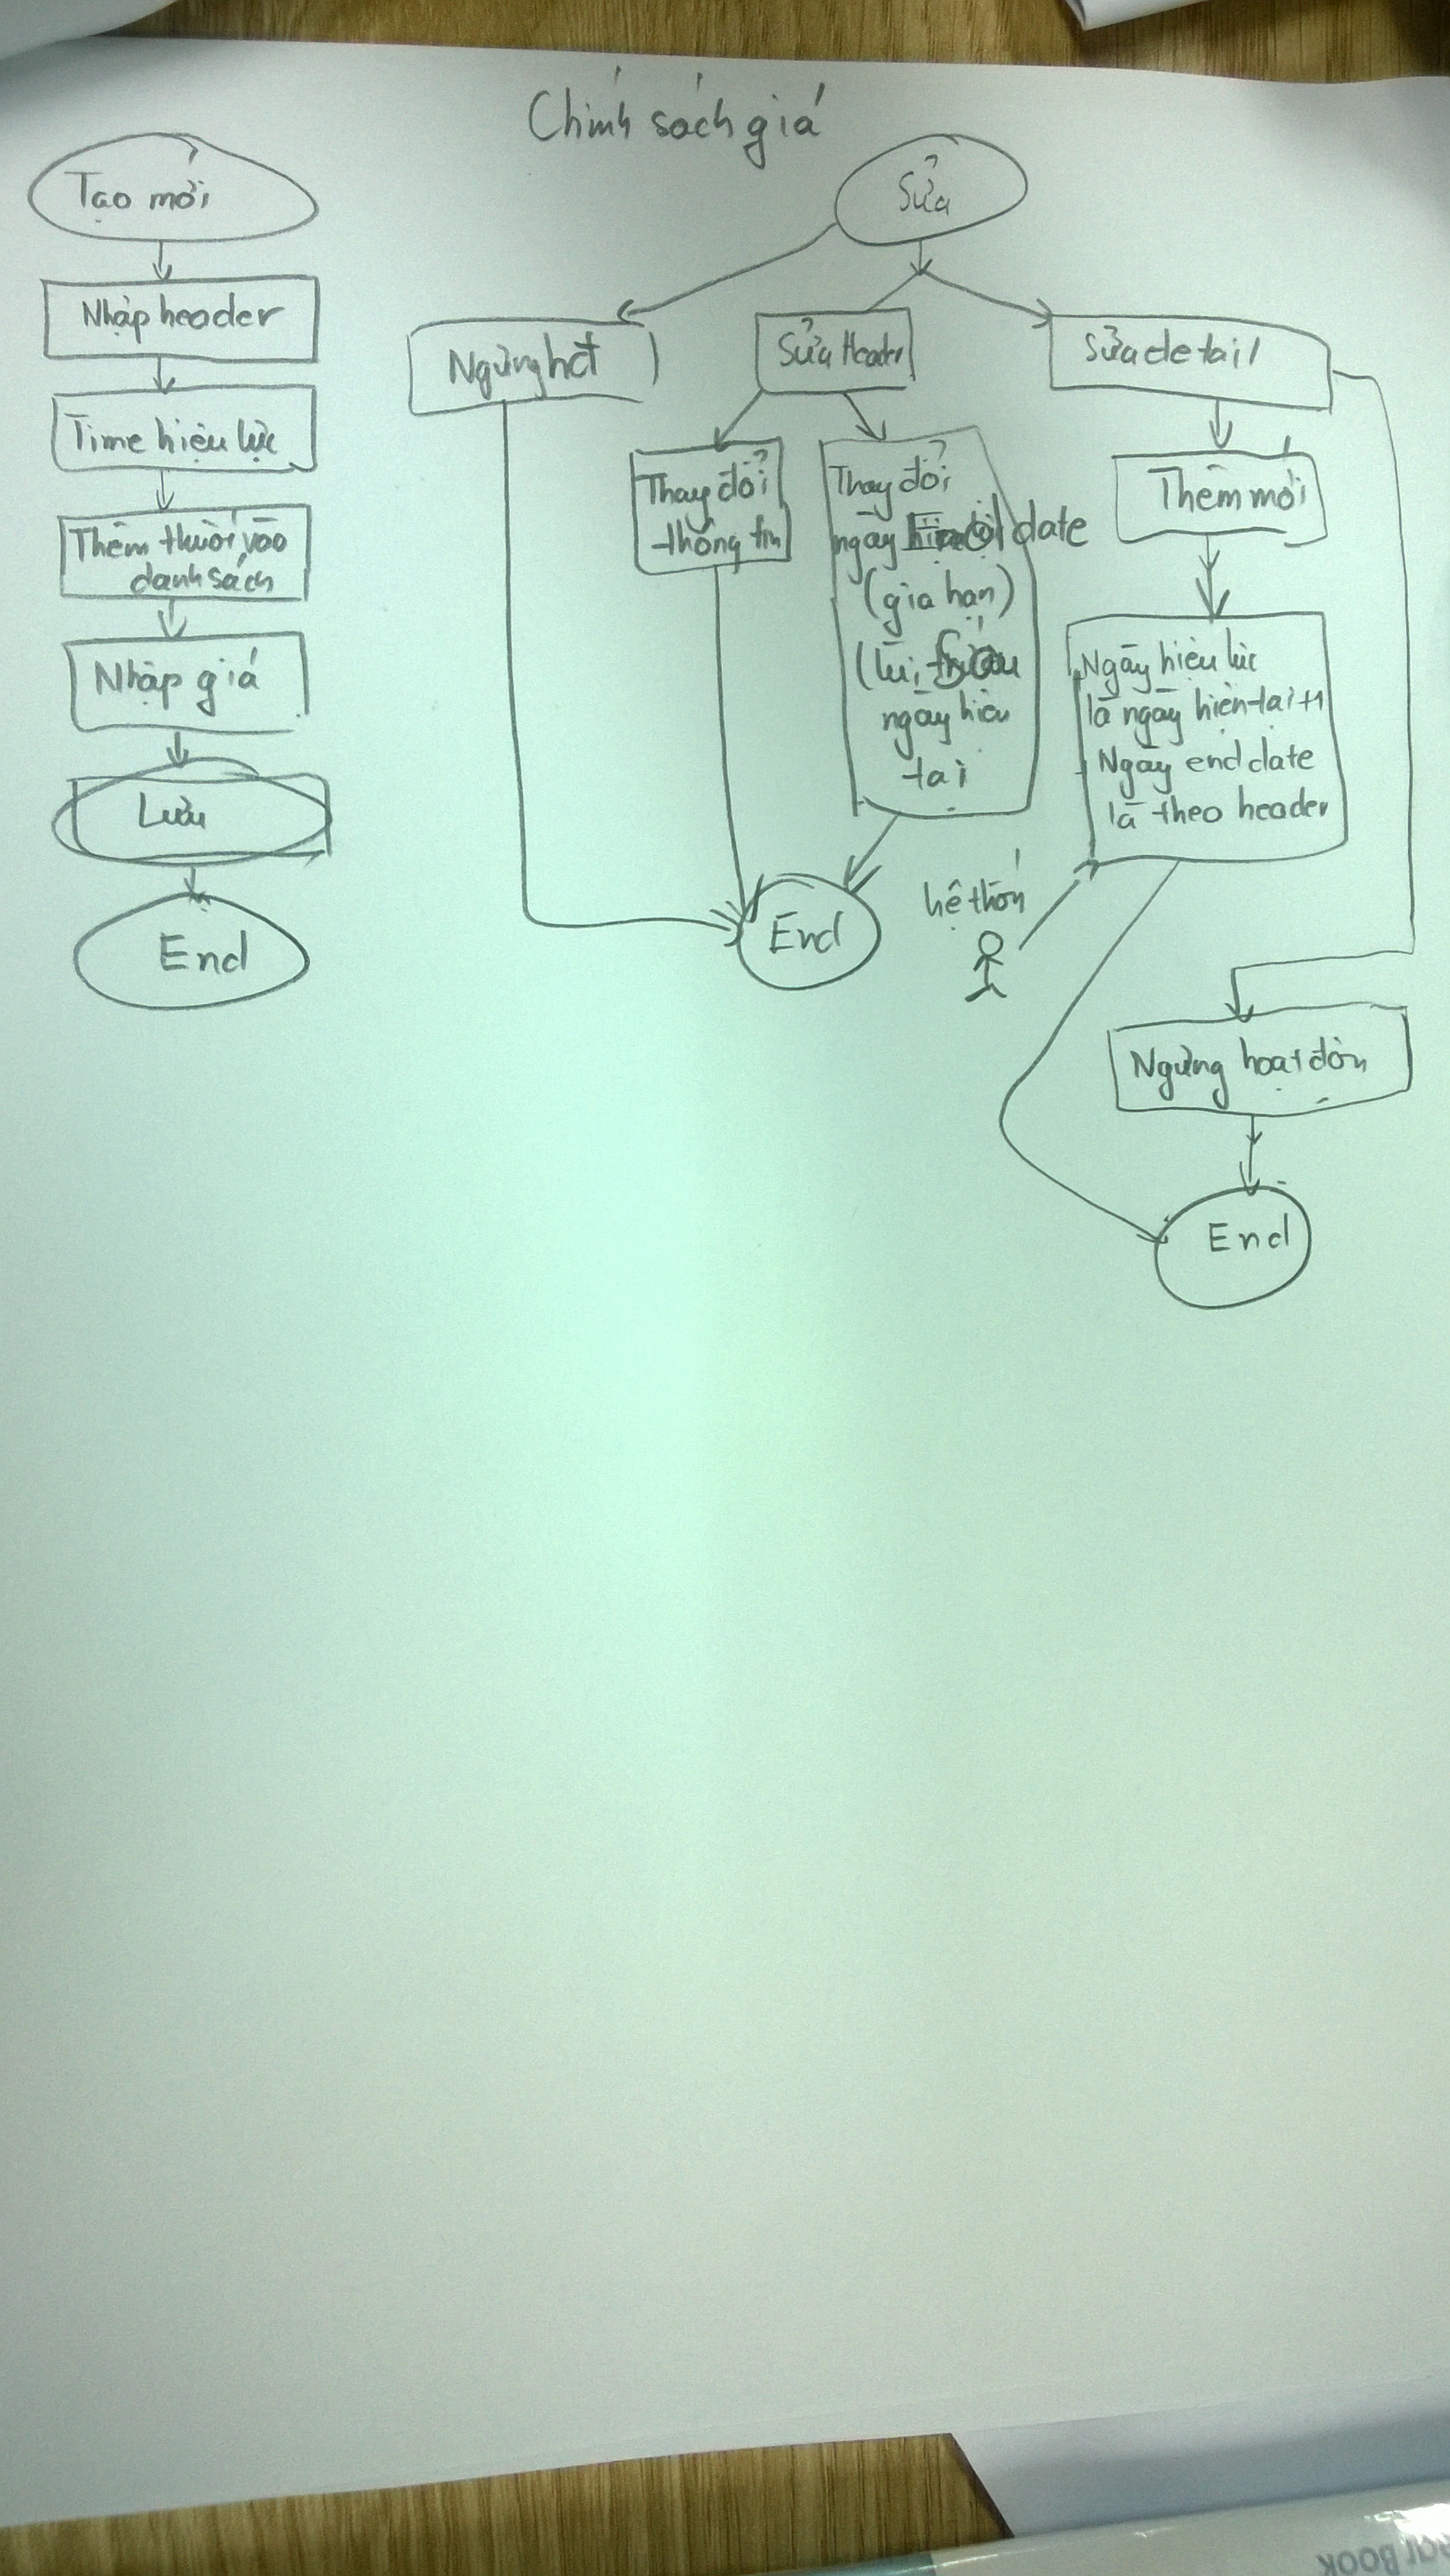 Chính sách giá
Tạo mới
Nhập header
Time hiệu lực
Thêm thuốc vào
danh sách
Nhập giá
Lưu
End
Sửa
Ngừng hđ
Sửa Header
Thay đổi
thông tin
Thay đổi
ngày End date
(gia hạn)
(lùi
ngày hiện
tại
End
Sửa detail
Thêm mới
Ngày hiệu lực
là ngày hiện tại +1
Ngày end date
là theo header
hệ thốn
Ngừng hoạt độn
End
BOOK